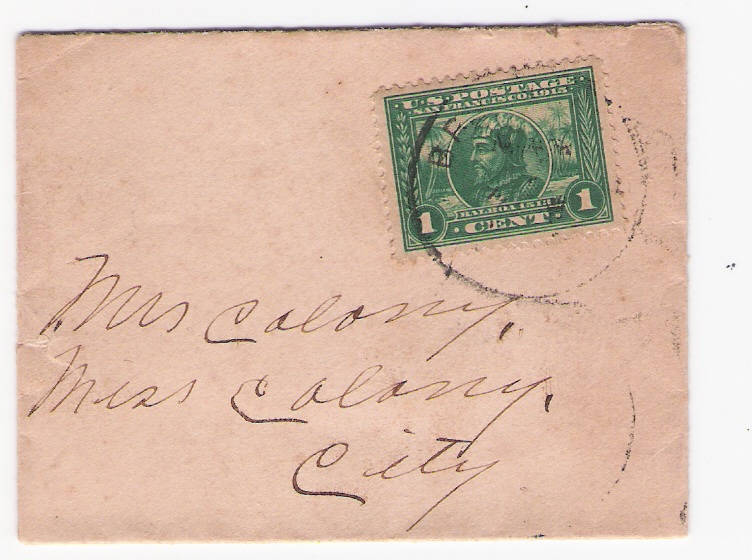 U.S. POSTAGE
SAN FRANCISCO, 1915
BALBOA 1513
1 CENT 1
Mrs Colony,
Miss Colony,
City